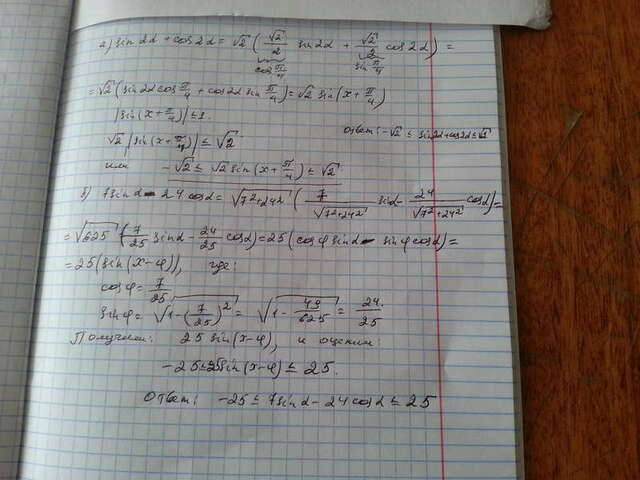 а) sin 2α + cos 2α = √2 ( √2/2 sin 2α + √2/2 cos 2α ) =
cos π/4 sin π/4
= √2 ( sin 2α cos π/4 + cos 2α sin π/4 ) = √2 sin (x + π/4)
|sin (x + π/4)| ≤ 1.
√2 |sin (x + π/4)| ≤ √2
Ответ: -√2 ≤ sin 2α + cos 2α ≤ √2
или -√2 ≤ √2 sin (x + π/4) ≤ √2
б) 7 sin α - 24 cos α = √(7²+24²) ( 7/√(7²+24²) sin α - 24/√(7²+24²) cos α ) =
= √625 ( 7/25 sin α - 24/25 cos α ) = 25 ( cos φ sin α - sin φ cos α ) =
= 25 (sin (x - φ)), где:
cos φ = 7/25
sin φ = √(1 - (7/25)²) = √(1 - 49/625) = 24/25
Получаем: 25 sin (x - φ), и оценим:
-25 ≤ 25 sin (x - φ) ≤ 25.
Ответ: -25 ≤ 7 sin α - 24 cos α ≤ 25